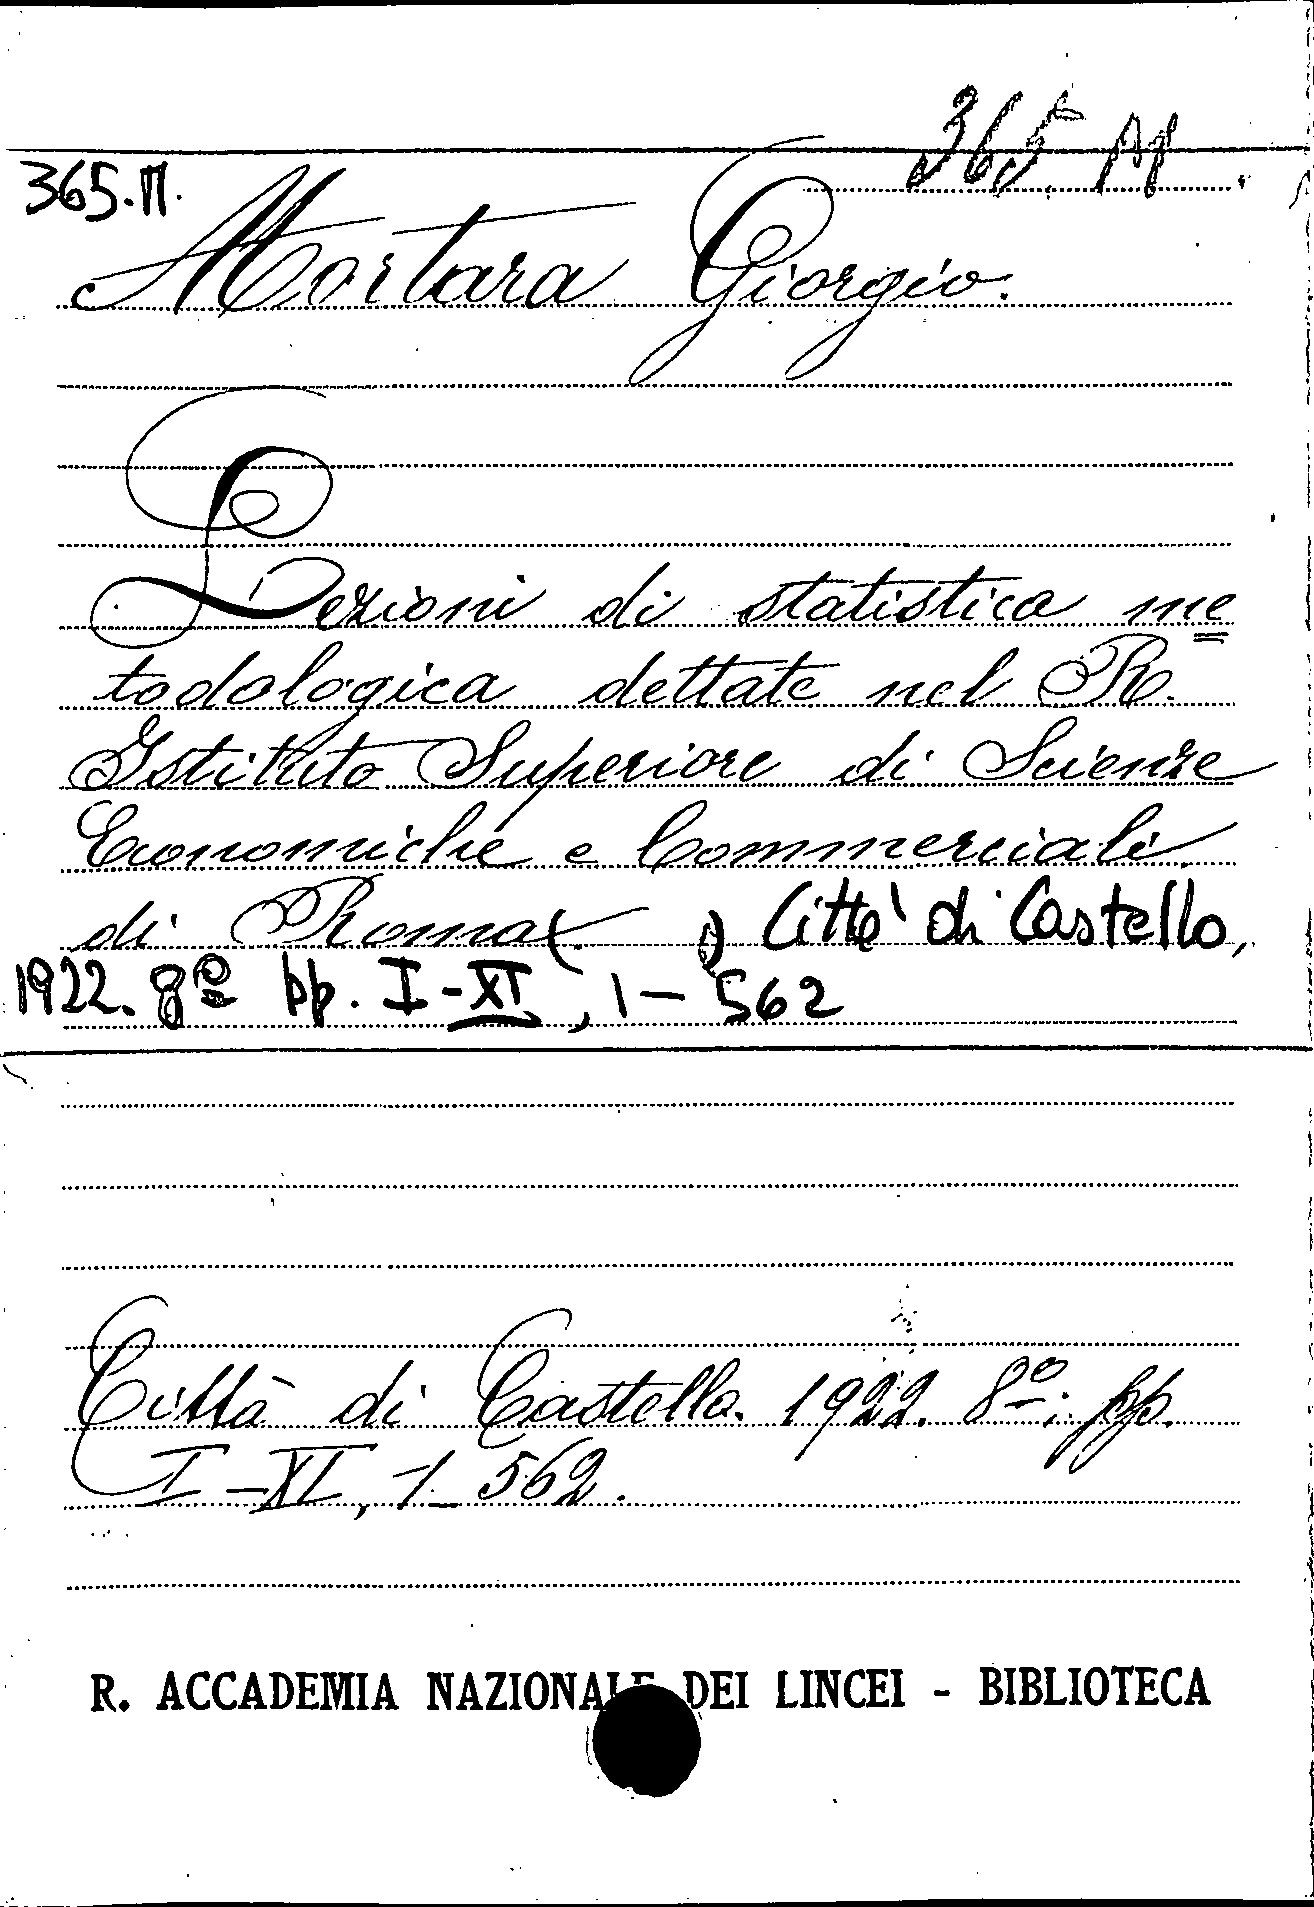 365. M.
365. M.
Mortara Giorgio.
Lezioni di statistica me
todologica dettate nel R.
Istituto Superiore di Scienze
Economiche e Commerciali
di Roma(. ) Città di Castello,
1922. 8º pp. I-XI, 1-562
Città di Castello. 1922. 8º; pp.
I-XI, 1-562.
R. ACCADEMIA NAZIONALE DEI LINCEI - BIBLIOTECA